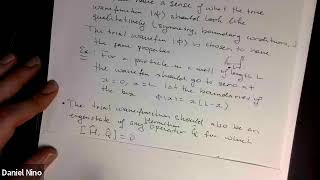 have a sense of what the true
wavefunction |φ⟩ should look like
qualitatively (symmetry, boundary conditions,
The trial wavefunction |φ⟩ is chosen to have
the same properties
Ex: For a particle in a well of length L
the wavefxn should go to zero at
x=0, x=L (at the boundaries of
the box φ(x)= x(L-x)
• The trial wavefunction should also be an
eigenstate of any Hermitian operator Q̂ for which
[Ĥ, Q̂] = 0
Daniel Nino